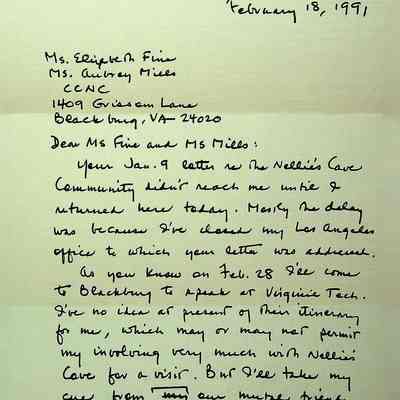 February 18, 1991
Ms. Elizabeth Fine
Ms. Aubrey Mills
CCNC
1409 Grissom Lane
Blacksburg, VA 24020
Dear Ms Fine and Ms Mills:
Your Jan. 9 letter re the Nellie's Cave
Community didn't reach me until I
returned here today. Mostly the delay
was because I've closed my Los Angeles
office to which your letter was addressed.
As you know on Feb. 28 I'll come
to Blacksburg to speak at Virginia Tech.
I've no idea at present of their itinerary
for me, which may or may not permit
my involving very much with Nellie's
Cave for a visit. But I'll take my
cue from our mutual friend